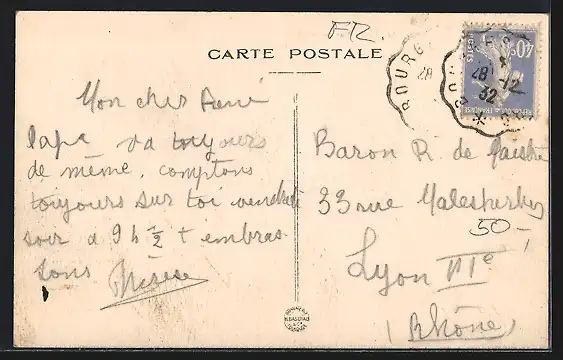 FR.
CARTE POSTALE
BOURG
28
40c
POSTES
REPUBLIQUE FRANÇAISE
28
12
32
Mon cher René
Papa va toujours
de même, comptons
toujours sur toi vendredi
soir a 9 h ½ t embras-
sons Thérèse
Baron R. de
33 rue Malesherbes
50-
Lyon IIIe
(Rhône)